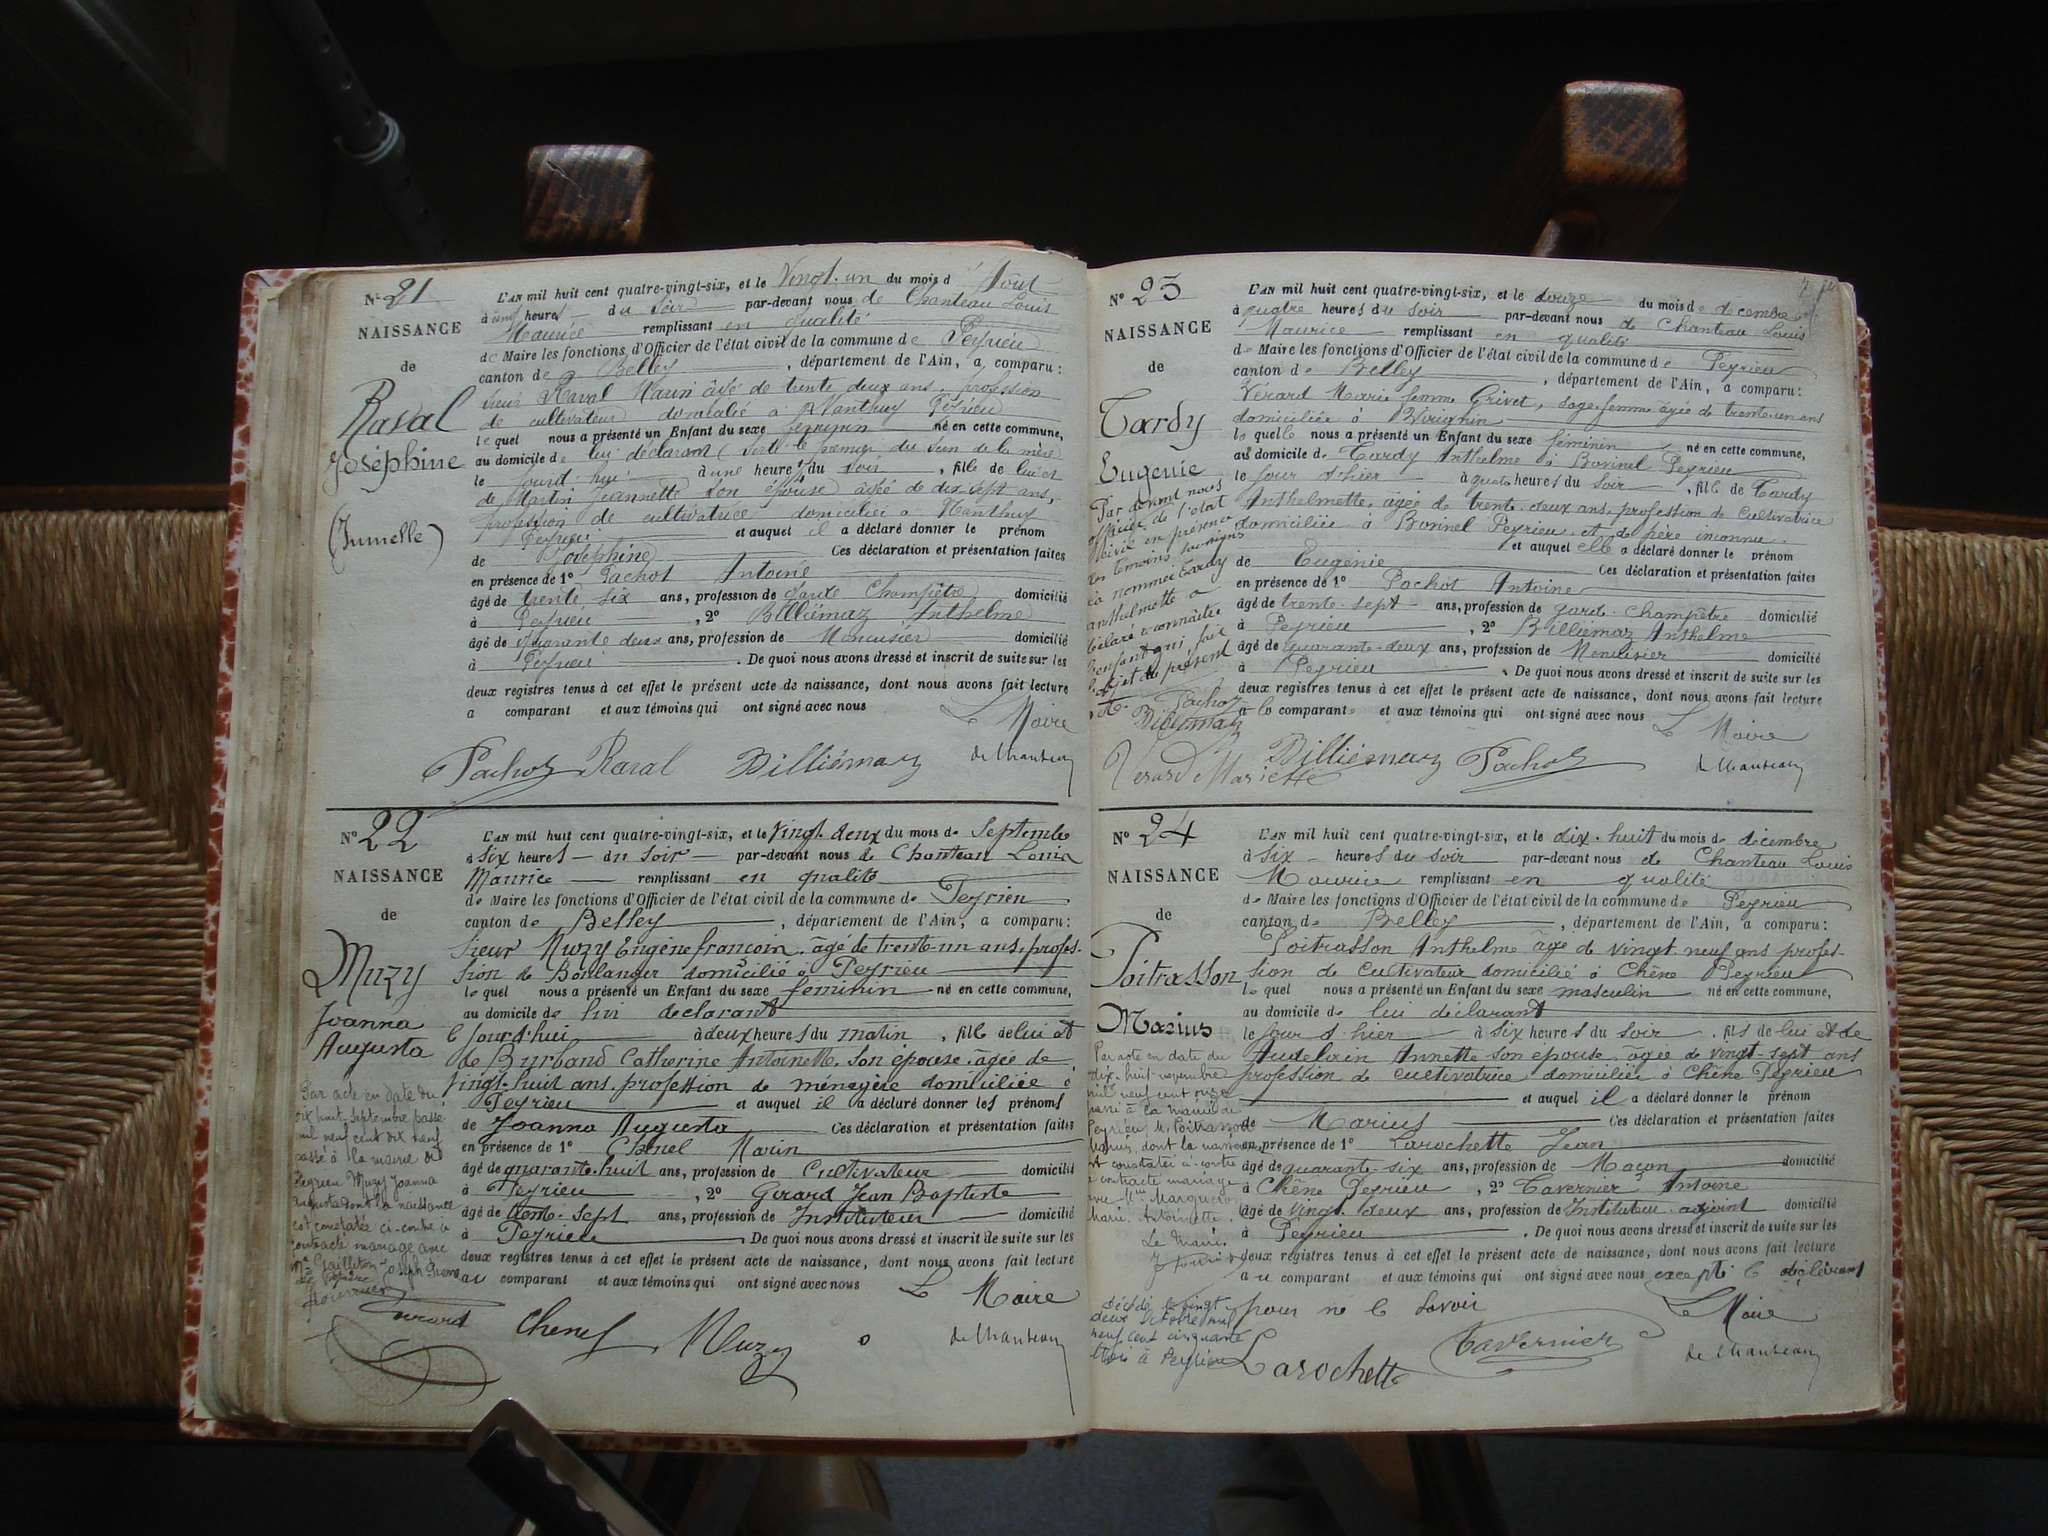 N° 21
NAISSANCE
de
Raval
Joséphine
(Jumelle)
L'AN mil huit cent quatre-vingt-six, et le Vingt-un du mois d'Août
à une heure du soir par-devant nous de Chanteau Louis
Maurice remplissant en qualité
de Maire les fonctions d'Officier de l'état civil de la commune de Peyrieu
canton de Belley, département de l'Ain, a comparu:
sieur Raval Marin âgé de trente deux ans, profession
de cultivateur domicilié à Nanthuy Peyrieu
lequel nous a présenté un Enfant du sexe féminin né en cette commune,
au domicile de lui déclarant (sorti le premier du sein de la mère)
le jourd'hui à une heure du soir, fille de lui et
de Martin Jeannette son épouse âgée de dix-sept ans,
profession de cultivatrice domiciliée à Nanthuy
Peyrieu et auquel il a déclaré donner le prénom
de Joséphine Ces déclaration et présentation faites
en présence de 1° Pachot Antoine
âgé de trente six ans, profession de garde Champêtre domicilié
à Peyrieu, 2° Billiémaz Anthelme
âgé de quarante deux ans, profession de Menuisier domicilié
à Peyrieu. De quoi nous avons dressé et inscrit de suite sur les
deux registres tenus à cet effet le présent acte de naissance, dont nous avons fait lecture
a comparant et aux témoins qui ont signé avec nous
Le Maire
Pachot Raval Billiémaz de Chanteau
N° 22
NAISSANCE
de
Muzy
Joanna
Augusta
Par acte en date du
dix huit septembre
mil neuf cent dix neuf
passé à la mairie de
Peyrieu Muzy Joanna
Augusta dont la naissance
est constatée ci-contre a
contracté mariage avec
Mr Gailleton Joseph Pierre
L'AN mil huit cent quatre-vingt-six, et le vingt-deux du mois de Septembre
à six heures du soir par-devant nous de Chanteau Louis
Maurice remplissant en qualité
de Maire les fonctions d'Officier de l'état civil de la commune de Peyrieu
canton de Belley, département de l'Ain, a comparu:
Sieur Muzy Eugène françois, âgé de trente-un ans, profes-
sion de Boulanger domicilié à Peyrieu
lequel nous a présenté un Enfant du sexe féminin né en cette commune,
au domicile de lui déclarant
le jourd'hui à deux heures du matin, fille de lui et
de Burbaud Catherine Antoinette, son épouse, âgée de
vingt-huit ans, profession de ménagère domiciliée à
Peyrieu et auquel il a déclaré donner les prénoms
de Joanna Augusta Ces déclaration et présentation faites
en présence de 1° Chenel Marin
âgé de quarante-huit ans, profession de Cultivateur domicilié
à Peyrieu, 2° Girard Jean Baptiste
âgé de trente-sept ans, profession de Instituteur domicilié
à Peyrieu. De quoi nous avons dressé et inscrit de suite sur les
deux registres tenus à cet effet le présent acte de naissance, dont nous avons fait lecture
au comparant et aux témoins qui ont signé avec nous
Le Maire
Girard Chenel Muzy de Chanteau
N° 23
NAISSANCE
de
Tardy
Eugénie
Par devant nous
officier de l'état
civil en présence
des témoins soussignés
la nommée Tardy
anthelmette a
déclaré reconnaître
l'enfant qui fait
l'objet du présent
Pachot
Billiémaz
L'AN mil huit cent quatre-vingt-six, et le douze du mois de décembre
à quatre heures du soir par-devant nous de Chanteau Louis
Maurice remplissant en qualité
de Maire les fonctions d'Officier de l'état civil de la commune de Peyrieu
canton de Belley, département de l'Ain, a comparu:
Vérard Marie femme Grivet, sage-femme âgée de trente-un ans
domiciliée à Virignin
laquelle nous a présenté un Enfant du sexe féminin né en cette commune,
au domicile de Tardy Anthelme à Bovinel Peyrieu
le jour d'hier à quatre heures du soir, fille de Tardy
Anthelmette, âgée de trente-deux ans, profession de Cultivatrice
domiciliée à Bovinel Peyrieu et de père inconnu.
et auquel elle a déclaré donner le prénom
de Eugénie Ces déclaration et présentation faites
en présence de 1° Pachot Antoine
âgé de trente-sept ans, profession de garde-champêtre domicilié
à Peyrieu, 2° Billiémaz Anthelme
âgé de quarante-deux ans, profession de Menuisier domicilié
à Peyrieu. De quoi nous avons dressé et inscrit de suite sur les
deux registres tenus à cet effet le présent acte de naissance, dont nous avons fait lecture
à la comparante et aux témoins qui ont signé avec nous
Le Maire
Vérard Mariette Billiémaz Pachot de Chanteau
N° 24
NAISSANCE
de
Poitrasson
Marius
Par acte en date du
dix-huit novembre
mil neuf cent onze
passé à la mairie de
Peyrieu M. Poitrasson
Marius, dont la naissance
est constatée ci-contre
a contracté mariage
avec Mlle
Marie Antoinette.
Le Maire
décédé le vingt
deux octobre mil
neuf cent cinquante
trois à Peyrieu
L'AN mil huit cent quatre-vingt-six, et le dix-huit du mois de décembre
à six heures du soir par-devant nous de Chanteau Louis
Maurice remplissant en qualité
de Maire les fonctions d'Officier de l'état civil de la commune de Peyrieu
canton de Belley, département de l'Ain, a comparu:
Poitrasson Anthelme âgé de vingt-neuf ans profes-
sion de Cultivateur domicilié à Chêne Peyrieu
lequel nous a présenté un Enfant du sexe masculin né en cette commune,
au domicile de lui déclarant
le jour d'hier à six heures du soir, fils de lui et de
Annette son épouse âgée de vingt-sept ans
profession de cultivatrice domiciliée à Chêne Peyrieu
et auquel il a déclaré donner le prénom
de Marius Ces déclaration et présentation faites
en présence de 1° Larochette Jean
âgé de quarante-six ans, profession de Maçon domicilié
à Chêne Peyrieu, 2° Tavernier Antoine
âgé de vingt-deux ans, profession de Instituteur adjoint domicilié
à Peyrieu. De quoi nous avons dressé et inscrit de suite sur les
deux registres tenus à cet effet le présent acte de naissance, dont nous avons fait lecture
au comparant et aux témoins qui ont signé avec nous excepté le déclarant
pour ne le savoir
Le Maire
Larochette Tavernier de Chanteau